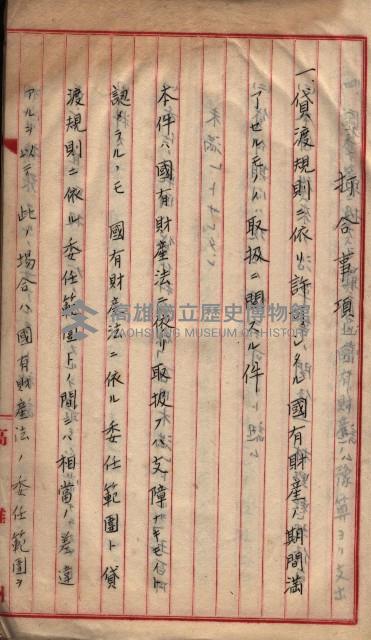 打合事項
一、貸渡規則ニ依リ許可シタル國有財産ノ期間滿
了セルモノノ取扱ニ關スル件
本件ハ國有財産法ニ依リ取扱フ代支障ナキモノト
認メラルルモ國有財産法ニ依ル委任範圍ト貸
渡規則ニ依ル委任範圍トノ間ニハ相當ノ差違
アルヲ以テ此ノ場合ハ國有財産法ノ委任範圍ヲ
高雄市立歷史博物館
KAOHSIUNG MUSEUM OF HISTORY
高雄